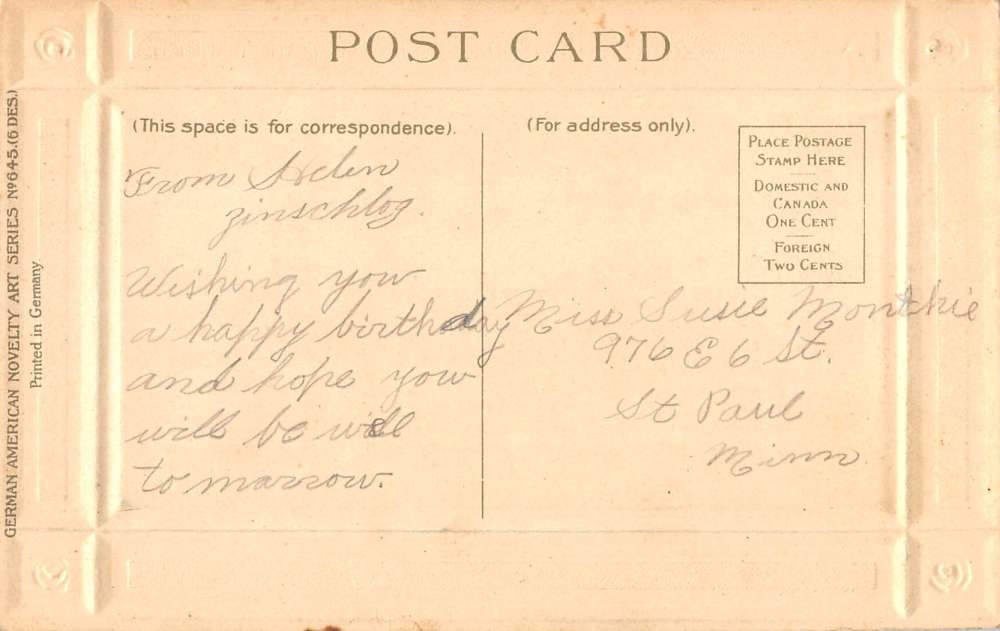 POST CARD
GERMAN AMERICAN NOVELTY ART SERIES Nº645.(6 DES.)
Printed in Germany
(This space is for correspondence).
From Helen
zinschlog.
Wishing you
a happy birthday
and hope you
will be well
to marrow.
(For address only).
PLACE POSTAGE
STAMP HERE
DOMESTIC AND
CANADA
ONE CENT
FOREIGN
TWO CENTS
Miss Susie Monthie
976 E 6 St.
St Paul
Minn